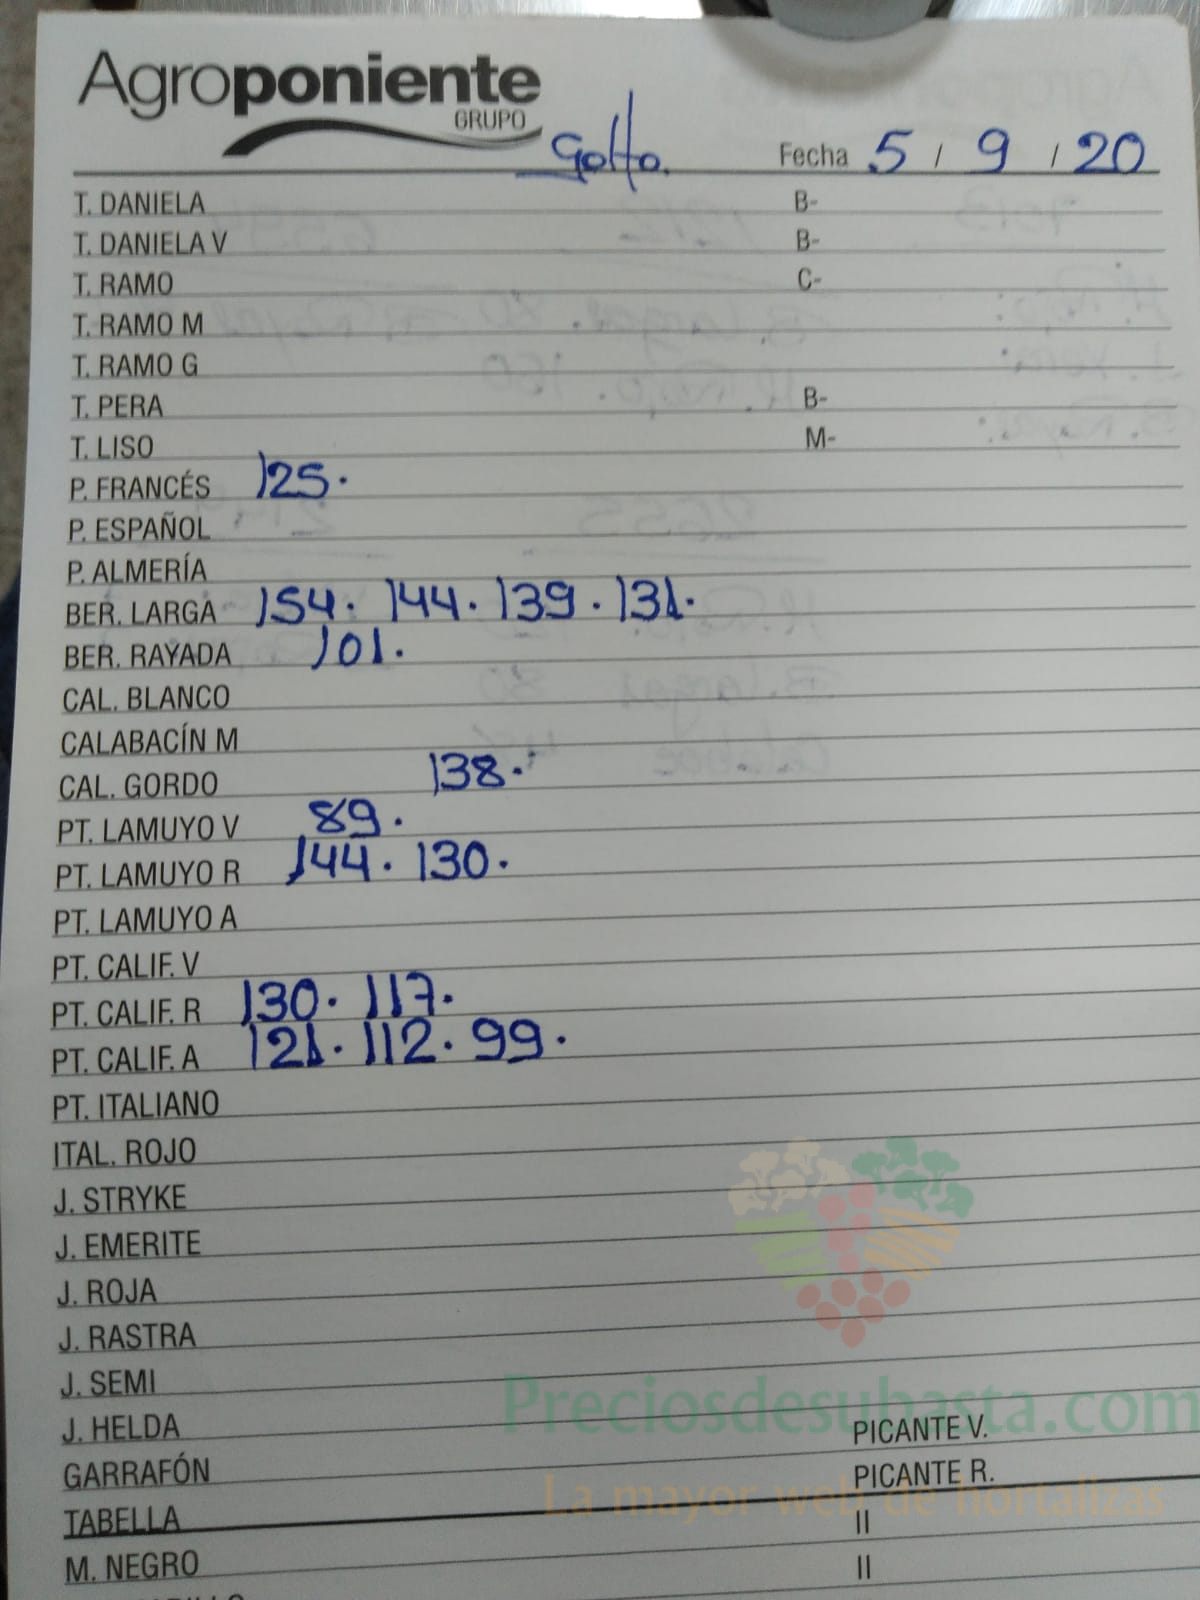 Agroponiente
GRUPO
Golfo. Fecha 5 / 9 / 20
T. DANIELA B-
T. DANIELA V B-
T. RAMO C-
T. RAMO M
T. RAMO G
T. PERA B-
T. LISO M-
P. FRANCÉS 125.
P. ESPAÑOL
P. ALMERÍA
BER. LARGA 154. 144. 139. 131.
BER. RAYADA 101.
CAL. BLANCO
CALABACÍN M
CAL. GORDO 138.
PT. LAMUYO V 89.
PT. LAMUYO R 144. 130.
PT. LAMUYO A
PT. CALIF. V
PT. CALIF. R 130. 117.
PT. CALIF. A 121. 112. 99.
PT. ITALIANO
ITAL. ROJO
J. STRYKE
J. EMERITE
J. ROJA
J. RASTRA
J. SEMI
Preciosdesubasta.com
J. HELDA PICANTE V.
GARRAFÓN PICANTE R.
La mayor web de hortalizas
TABELLA II
M. NEGRO II